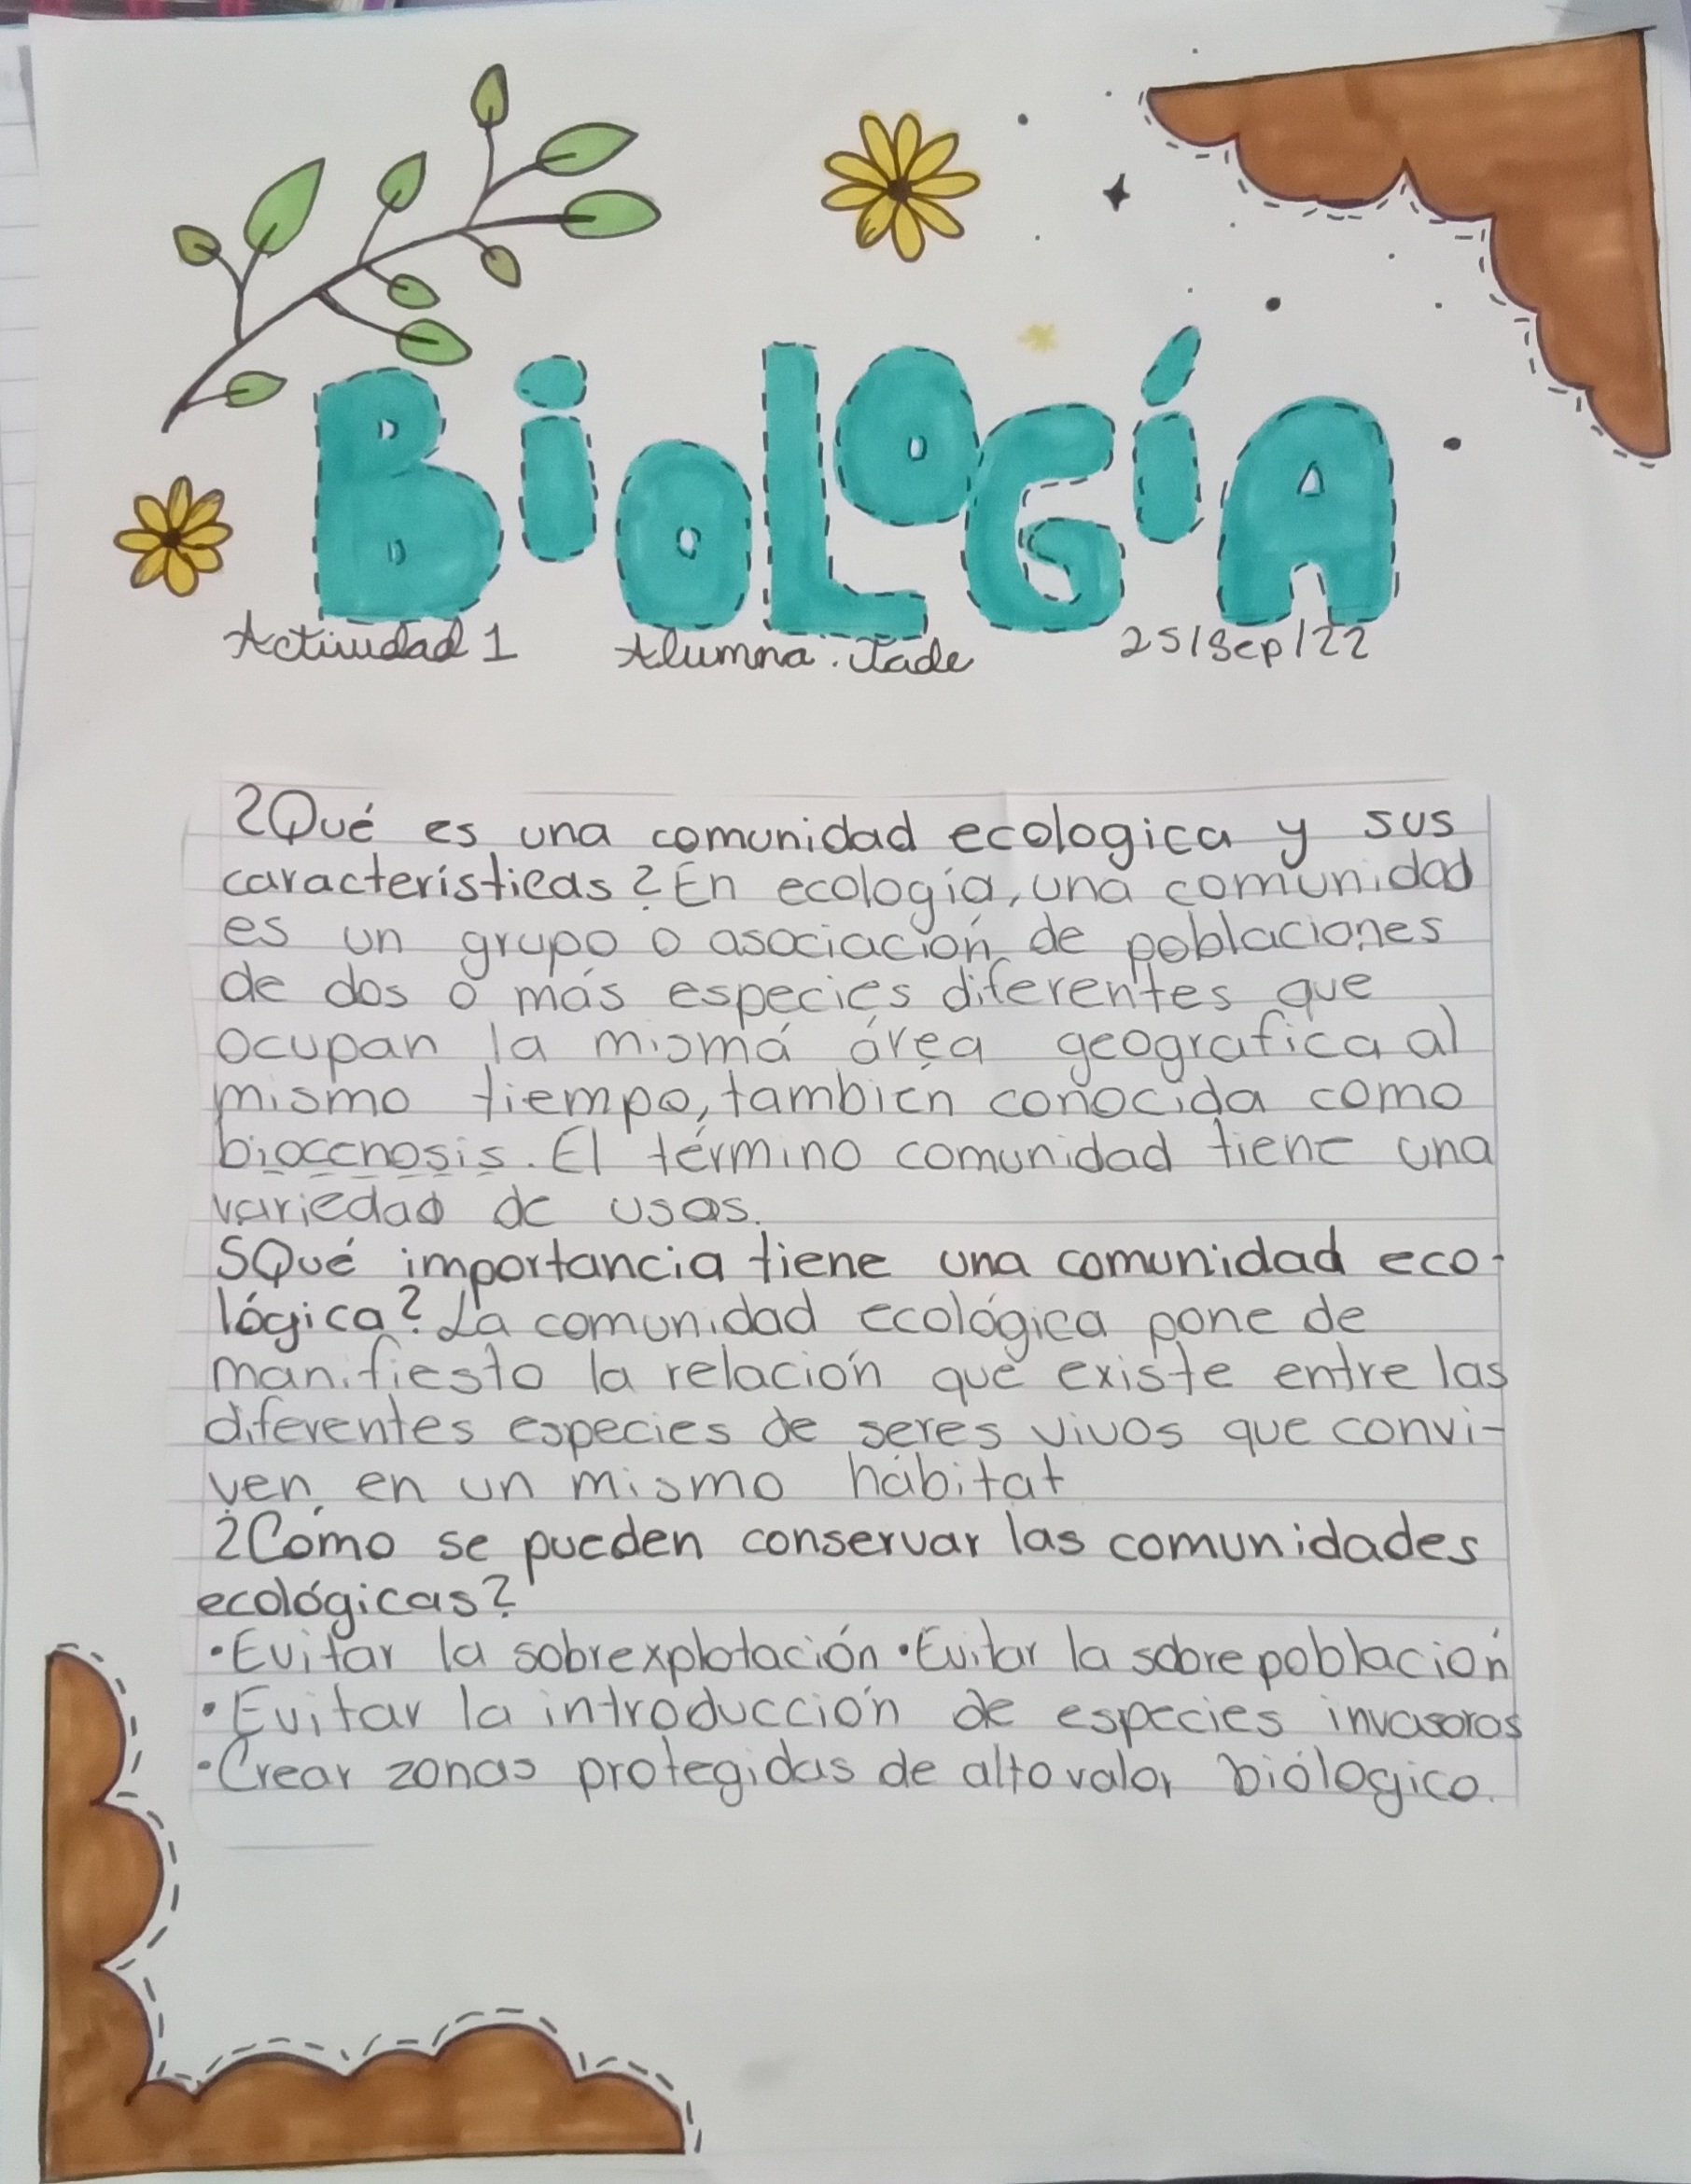 BioLoGíA
Actividad 1 Alumna. Jade 25/Sep/22
¿Qué es una comunidad ecologica y sus
características? En ecología, una comunidad
es un grupo o asociación de poblaciones
de dos o más especies diferentes que
ocupan la misma área geografica al
mismo tiempo, tambien conocida como
biocenosis. El término comunidad tiene una
variedad de usos.
¿Qué importancia tiene una comunidad eco-
lógica? La comunidad ecológica pone de
manifiesto la relación que existe entre las
diferentes especies de seres vivos que convi-
ven en un mismo hábitat
¿Cómo se pueden conservar las comunidades
ecológicas?
•Evitar la sobrexplotación •Evitar la sobrepoblación
•Evitar la introducción de especies invasoras
•Crear zonas protegidas de alto valor biólogico.